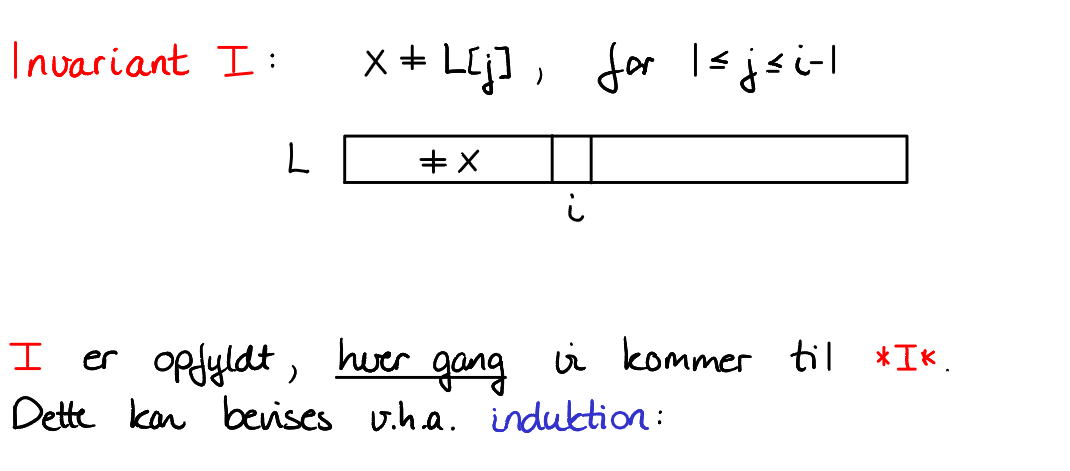 Invariant I: x ≠ L[j], for 1 ≤ j ≤ i-1
L ≠ x
i
I er opfyldt, hver gang vi kommer til *I*.
Dette kan bevises v.h.a. induktion: